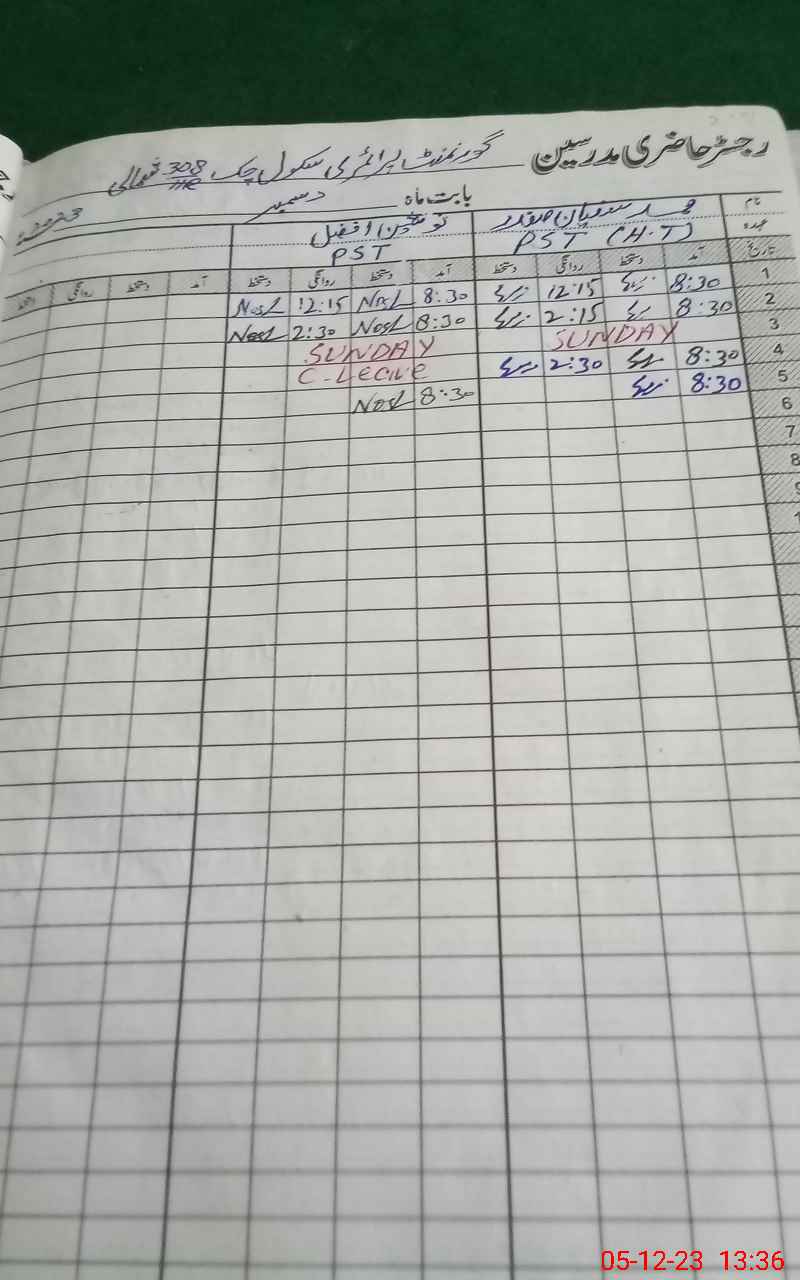 رجسٹر حاضری مدرسین گورنمنٹ پرائمری سکول چک 308/HR شمالی
بابت ماہ دسمبر 2023ء
نام محمد سفیان صفدر افضل
عہدہ PST (H.T) PST
تاریخ آمد دستخط روانگی دستخط آمد دستخط روانگی دستخط آمد دستخط روانگی دستخط
1 8:30 12:15 8:30 12:15
2 8:30 2:15 8:30 2:30
3 SUNDAY SUNDAY
4 8:30 2:30 C-Lecive
5 8:30 8:30
6
7
8
05-12-23 13:36